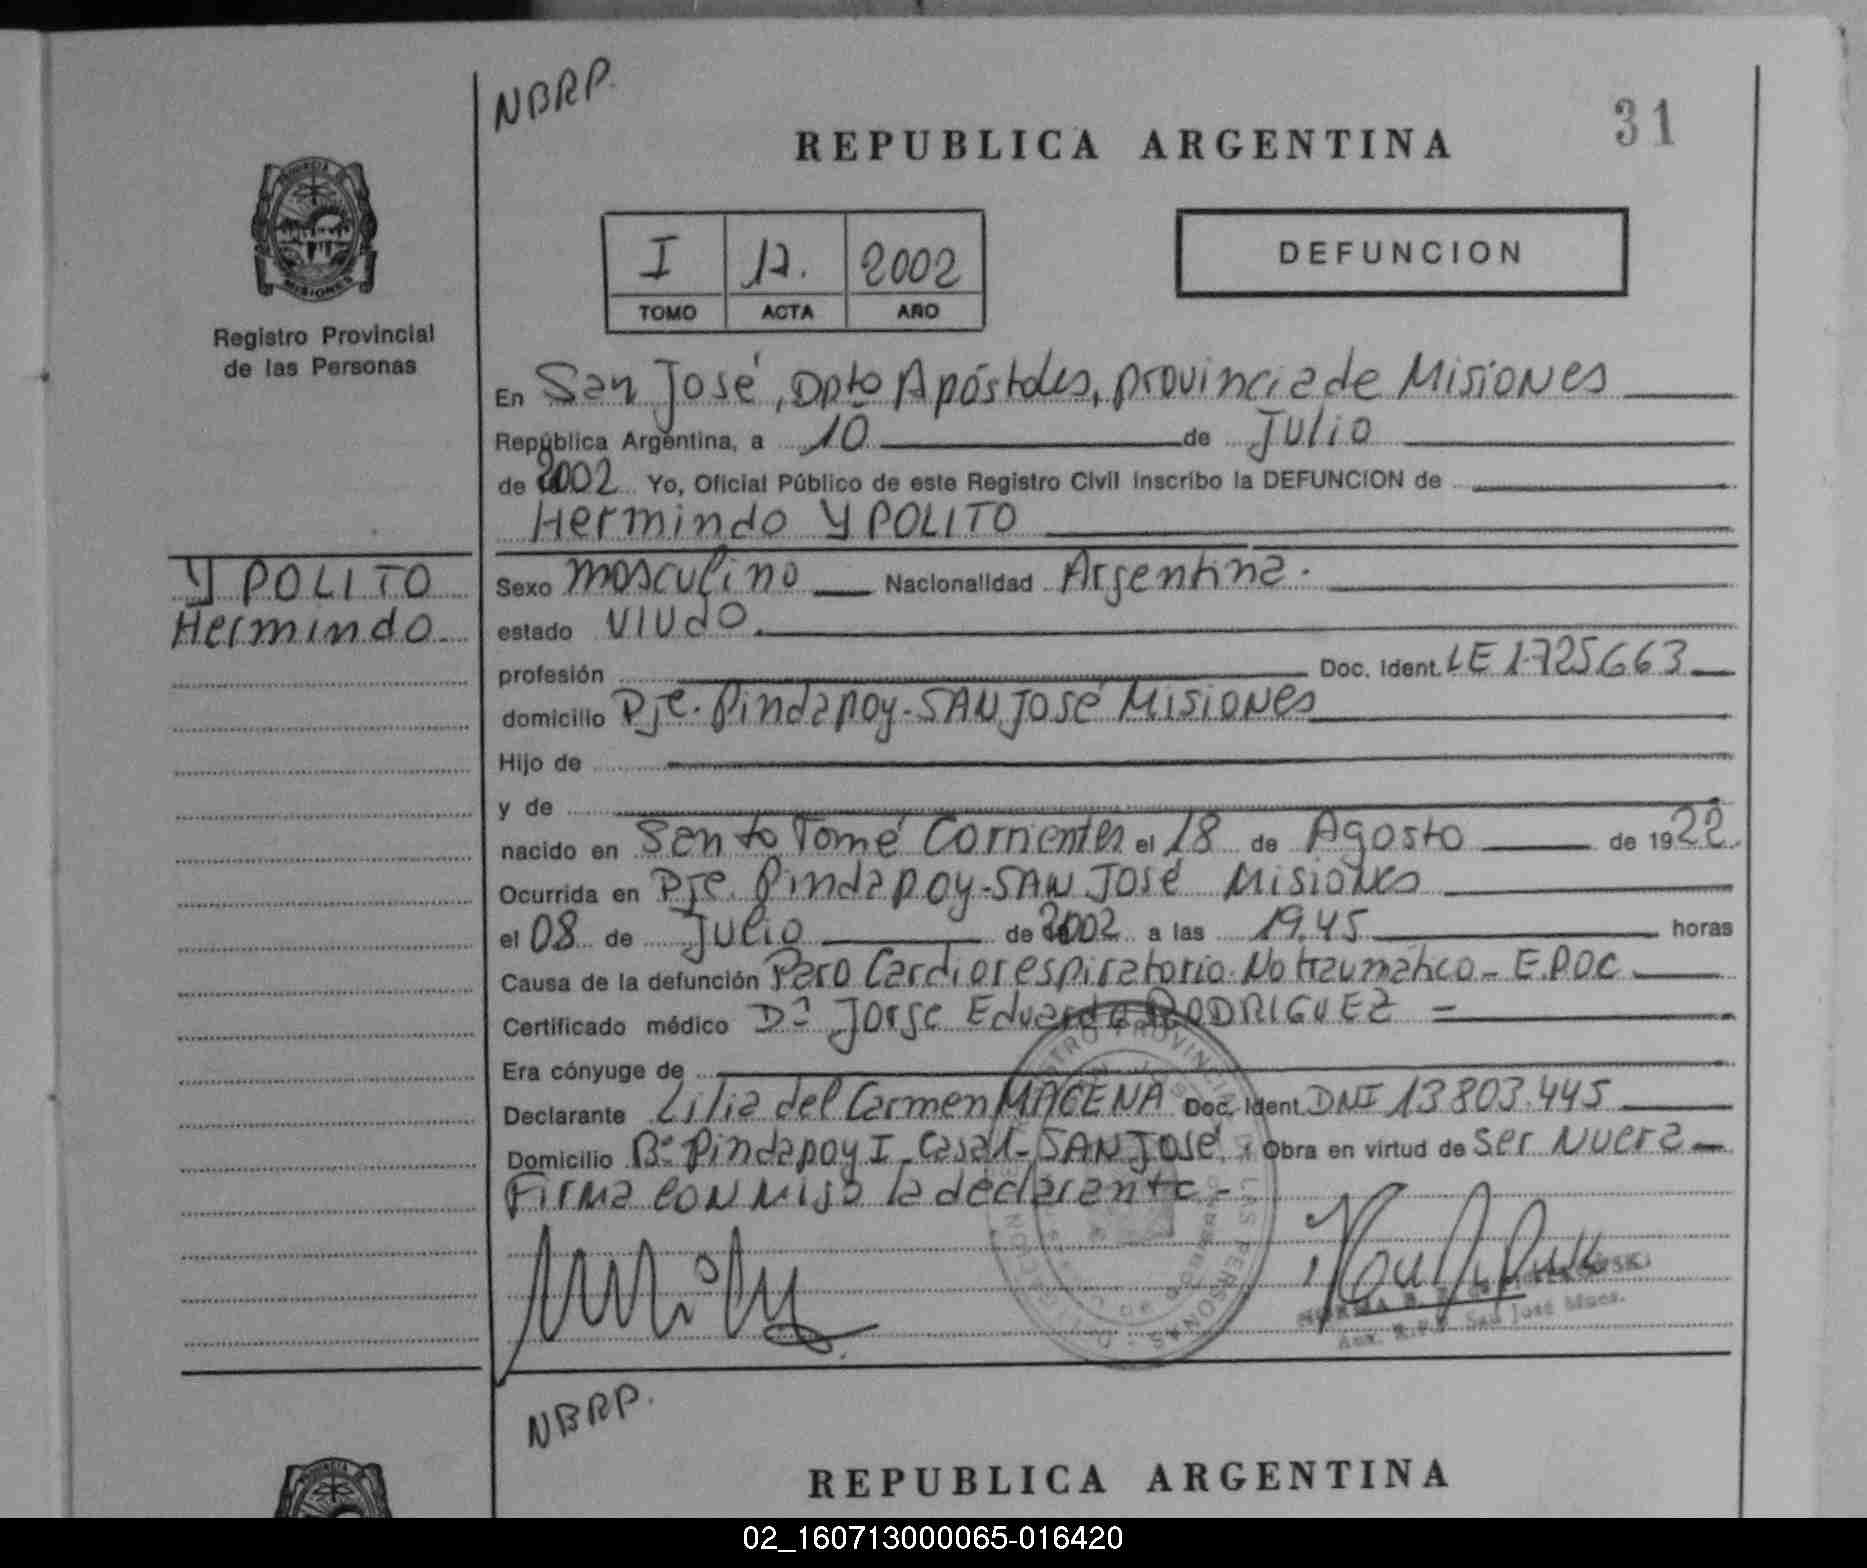 NBRP.
31
REPUBLICA ARGENTINA
PROVINCIA DE
MISIONES
Registro Provincial
de las Personas
I 12. 2002
TOMO ACTA AÑO
DEFUNCION
En San José, Dpto Apóstoles, provincia de Misiones
República Argentina, a 10 de Julio
de 2002 Yo, Oficial Público de este Registro Civil inscribo la DEFUNCION de
Hermindo YPOLITO
YPOLITO
Hermindo
Sexo masculino Nacionalidad Argentina.
estado viudo.
profesión Doc. Ident. LE 1.725.663
domicilio Pje. Pindapoy-SAN José Misiones
Hijo de
y de
nacido en Santo Tomé Corrientes el 18 de Agosto de 1922.
Ocurrida en Pje. Pindapoy-SAN José Misiones
el 08 de Julio de 2002 a las 19.45 horas
Causa de la defunción Paro Cardiorespiratorio No traumático - E.P.O.C
Certificado médico Dr Jorge Eduardo RODRIGUEZ =
Era cónyuge de
Declarante Lilia del Carmen MACENA Doc. Ident. DNI 13.803.445
Domicilio Bº Pindapoy I - Casa 1 - SAN José. Obra en virtud de Ser Nuera
Firma con migo la declarante -
Aux. R.P.P. San José Mnes.
NBRP.
REPUBLICA ARGENTINA
02_160713000065-016420